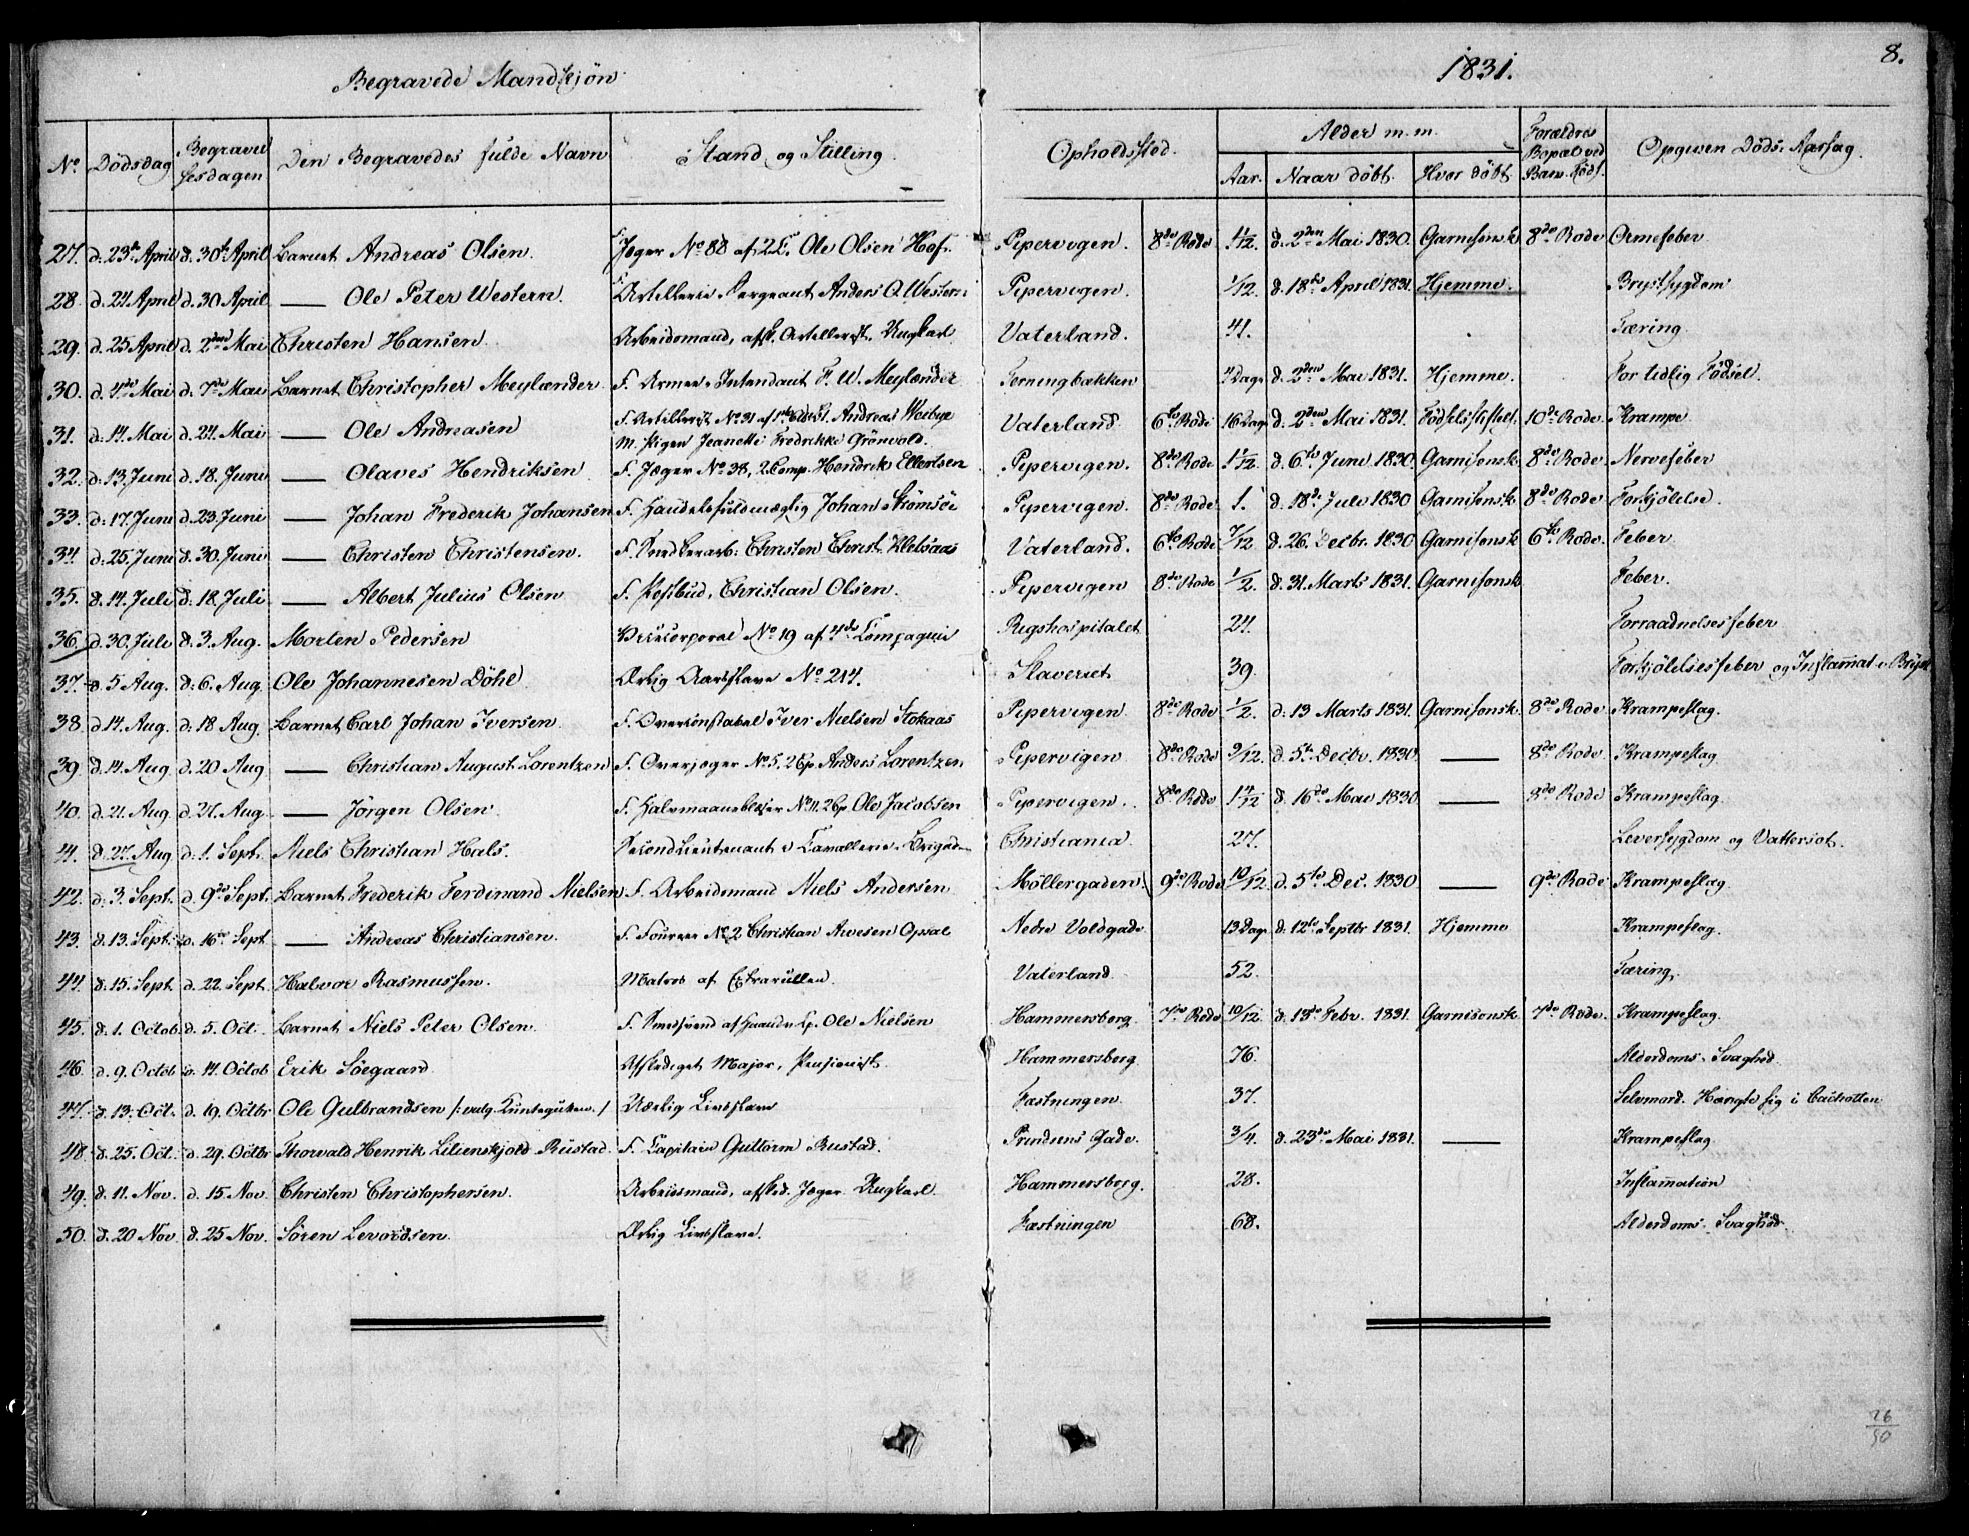 Begravede Mandkjön
1831.
8.
No Dödsdag Begravelsesdagen Den Begravedes fulde Navn Stand og Stilling Opholdssted Alder m.m. Aar. Naar döbt. Hvor döbt Forældres Bopæl ved Barn. Föds. Opgiven Döds-Aarsag.
27. d. 23de April d. 30te April Barnet Andreas Olsen. F. Jæger No 88 af 2 C. Ole Olsen Hof. Pipervigen. 8de Rode d. 2den Mai 1830. Garnisonsk 8de Rode Ormefeber
28. d. 24 April d. 30 April — Ole Peter Western. F. Artillerie Sergeant Anders O. Western Pipervigen. 1/12. d. 18de April 1831. Hjemme. Brystsygdom
29. d. 25 April d. 2den Mai Christen Hansen Arbeidsmand, afsk. Artillerist. Ungkarl Vaterland. 41. Tæring.
30. d. 4de Mai d. 7de Mai Barnet Christopher Meylænder F. Armee-Intendant F. W. Meylænder Terningbækken 4 Dage d. 2den Mai 1831. Hjemme. For tidlig Födsel.
31. d. 14 Mai d. 21 Mai — Ole Andreasen F. Artillerist No 31 Andreas
M. Pigen Jeanette Fredrikke Grönvold. Vaterland. 6te Rode 16 Dage d. 2den Mai 1831. Födselsstiftels. 10de Rode Krampe
32. d. 13. Juni d. 18. Juni — Olaves Hendriksen F. Jæger No 38, 2 Comp. Hendrik Ellertsen Pipervigen. 8de Rode 1 1/12. d. 6te Juni 1830. Garnisonsk 8de Rode Nervefeber
33. d. 17. Juni d. 23. Juni — Johan Frederik Johansen F. Handelsfuldmægtig Johan Strömsöe Pipervigen. 8de Rode 1. d. 18de Juli 1830 Garnisonsk 8de Rode Forkjölelse.
34. d. 25. Juni d. 30. Juni — Christen Christensen. F. Christen Christ. Vaterland. 6te Rode 7/12 d. 26. Decbr. 1830 Garnisonsk 6te Rode. Feber
35. d. 14. Juli d. 18. Juli — Albert Julius Olsen F. Postbud, Christian Olsen. Pipervigen 8de Rode 1/2. d. 31. Marts 1831. Garnisonsk Feber.
36. d. 30. Juli d. 3. Aug. Morten Pedersen Vicecorporal No 19 af 4de Compagnie Rigshospitalet 24. Forraadnelsesfeber
37. d. 5 Aug. d. 6. Aug. Ole Johannesen Döhl Ærlig Aarsslave No 214. Slaveriet 39. Forkjölelsesfeber og Inflammat. i Bryst
38. d. 14. Aug. d. 18 Aug. Barnet Carl Johan Iversen. F. Overconstabel Iver Nielsen Stokaas Pipervigen 8de Rode 1/2. d. 13 Marts 1831. Garnisonsk. 8de Rode Krampeslag.
39. d. 14. Aug d. 20 Aug — Christian August Lorentzen F. Overjæger No 5. 2 Cp. Anders Lorentzen Pipervigen 8de Rode 9/12. d. 5te Decbr. 1830. — 8de Rode Krampeslag
40. d. 21. Aug d. 27. Aug. — Jörgen Olsen. F. Halvmaaneblæser No 11. 2 Cp Ole Jacobsen Pipervigen. 8de Rode 1 4/12 d. 16de Mai 1830. — 8de Rode Krampeslag
41. d. 27. Aug d. 1. Sept. Niels Christian Hals. Second Lieutenant v Cavallerie-Brigaden Christiania. 27. Leversygdom og Vattersot.
42. d. 3. Sept. d. 9de Sept. Barnet Frederik Ferdinand Nielsen F. Arbeidsmand Niels Andersen Möllergaden. 9de Rode 10/12. d. 5te Dec. 1830. — 9de Rode Krampeslag.
43. d. 13. Sept. d. 16de Sept. — Andreas Christiansen. F. Fourer No 2 Christian Opsal Nedre Voldgade. 13 Dage d. 12te Septbr. 1831. Hjemme Krampeslag.
44. d. 15. Sept d. 22. Sept. Halvor Rasmussen. Matros af Extrarullen. Vaterland 52. Tæring.
45. d. 1. Octob d. 5. Oct. Barnet Niels Peter Olsen. F. Smedsvend Ole Nielsen Hammersborg. 7de Rode 10/12. d. 13de Febr. 1831. Garnisonsk 7de Rode. Krampeslag.
46. d. 9. Octob d. 14. Octob Erik Söegaard. Afskediget Major, Pensionist. Hammersborg 76. Alderdoms-Svaghed.
47. d. 13. Oct. d. 19. Octbr Ole Gulbrandsen /: vulg. :/ Uærlig Livsslave Fæstningen. 37. Selvmord. Hængte sig i Cachotten
48. d. 25. Oct. d. 29. Octbr Thorvald Henrik Lilienskjold Rustad. F. Capitain Guttorm Rustad. Prindsens Gade. 3/4. d. 23de Mai 1831. — Krampeslag
49. d. 11. Nov. d. 15. Nov. Christen Christophersen. Arbeidsmand, afsked. Jæger. Ungkarl Hammersborg. 28. Inflamation
50. d. 20 Nov d. 25 Nov. Sören Levordsen. Ærlig Livsslave. Fæstningen 68. Alderdoms-Svaghed.
26
50